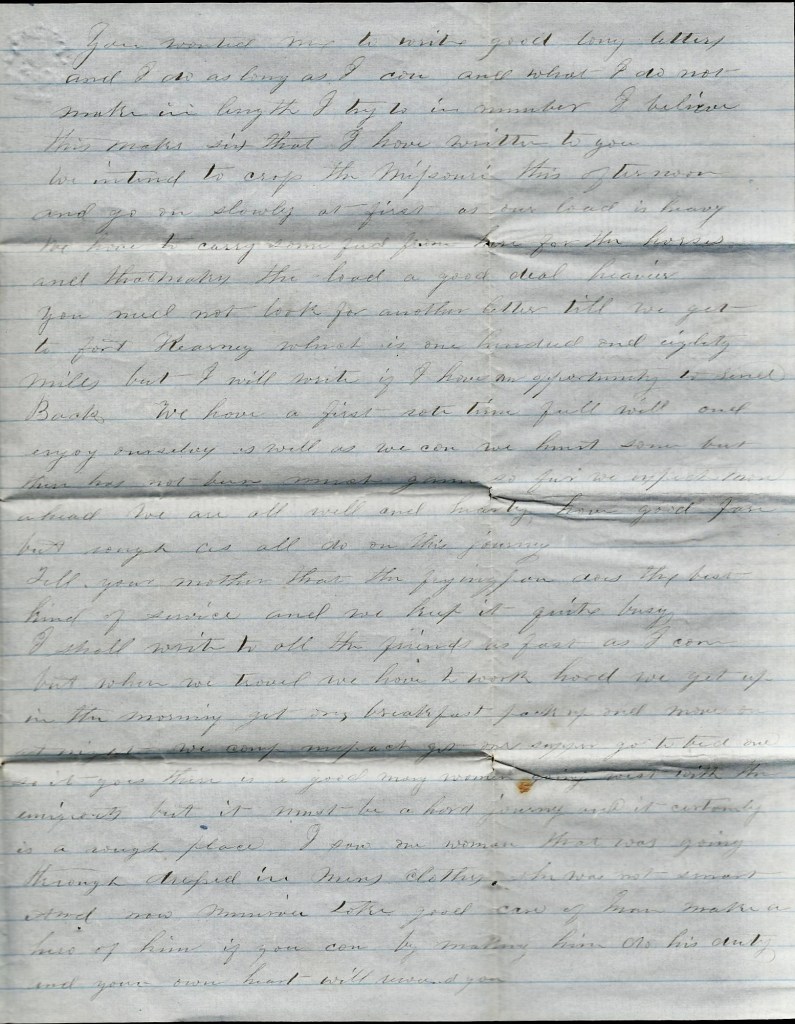 You wanted me to write good long letters
and I do as long as I can and what I do not
make in length I try to in number I believe
this makes six that I have written to you
We intend to crop the Mifsouri this afternoon
and go on slowly at first as our load is heavy
We have to carry some feed from here for the horses
and that makes the load a good deal heavier
You need not look for another letter till we get
to fort Kearney which is one hundred and eighty
miles but I will write if I have an opportunity to send
Back We have a first rate time full well and
enjoy ourselves as well as we can we hunt some but
there has not been much game so far we expect
ahead We are all well and hearty have good fare
but rough as all do on this journey
Tell your mother that the frying pan does the best
kind of service and we keep it quite busy
I shall write to all the friends as fast as I can
but when we travel we have to work hard we get up
in the morning get our breakfast pack up and move on
at night we camp unpack get our supper go to bed and
so it goes there is a good many women going west with the
emigrants but it must be a hard journey and it certainly
is a rough place I saw one woman that was going
through drefsed in Mens clothes. She was not smart
And now take good care of make a
hero of him if you can by making him do his duty
and your own heart will reward you